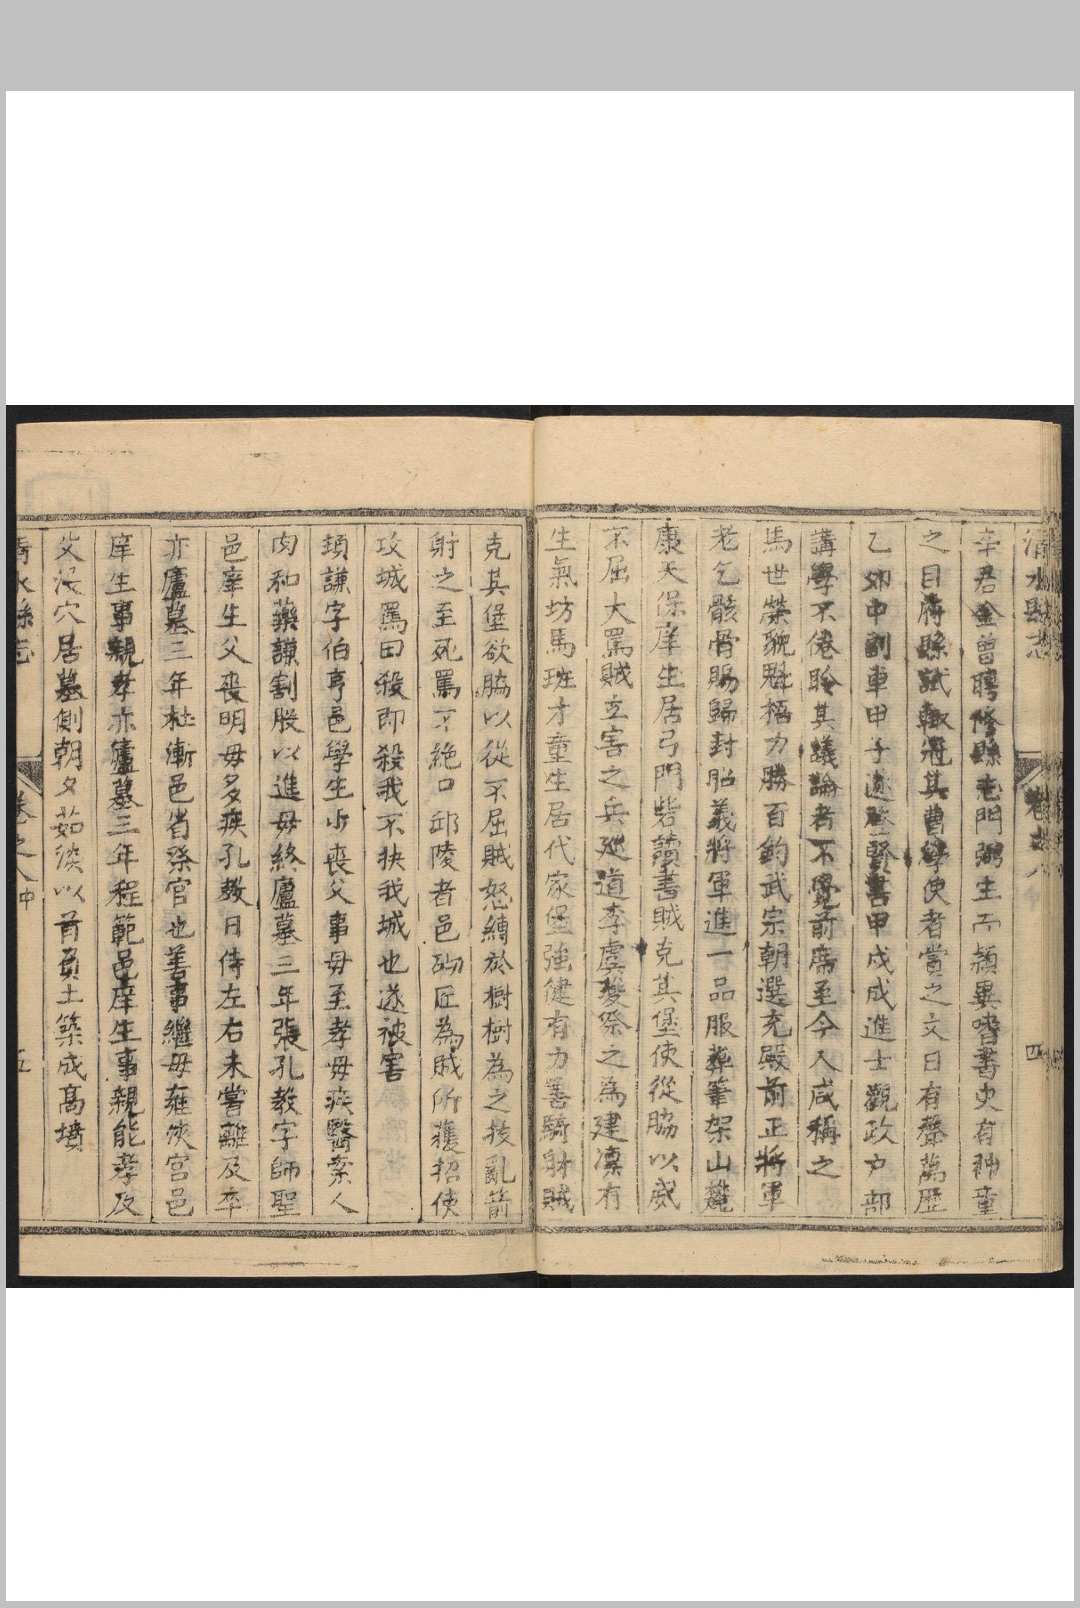 清水縣志 卷之八 四
辛君金曾聘修縣志門弼生而穎異嗜書史有神童
之目府縣試輙冠其曹學使者賞之文日有聲萬曆
乙卯中副車甲子遂登賢書甲戌成進士觀政户部
講學不倦聆其議論者不覺前席至今人咸稱之
馬世榮貌魁梧力勝百鈞武宗朝選充殿前正將軍
老乞骸骨賜歸封昭義將軍進一品服葬筆架山麓
康天保庠生居弓門砦讀書賊克其堡使從脇以威
不屈大罵賊立害之兵廵道李虞夔祭之為建凜有
生氣坊馬班才童生居代家堡強健有力善騎射賊
克其堡欲脇以從不屈賊怒縛於樹樹為之拔亂箭
射之至死罵不絶口邱陵者邑砌匠為賊所獲招使
攻城罵曰殺即殺我不抉我城也遂被害
頡謙字伯亨邑學生少喪父事母至孝母疾醫索人
肉和藥謙割股以進母終廬墓三年張孔教字師聖
邑庠生父喪明母多疾孔教日侍左右未嘗離及卒
亦廬墓三年杜漸邑省祭官也善事繼母雍俠宫邑
庠生事親孝亦廬墓三年程範邑庠生事親能孝及
父没穴居墓側朝夕茹淡以首負土築成高墳
清水縣志 卷之八中 五